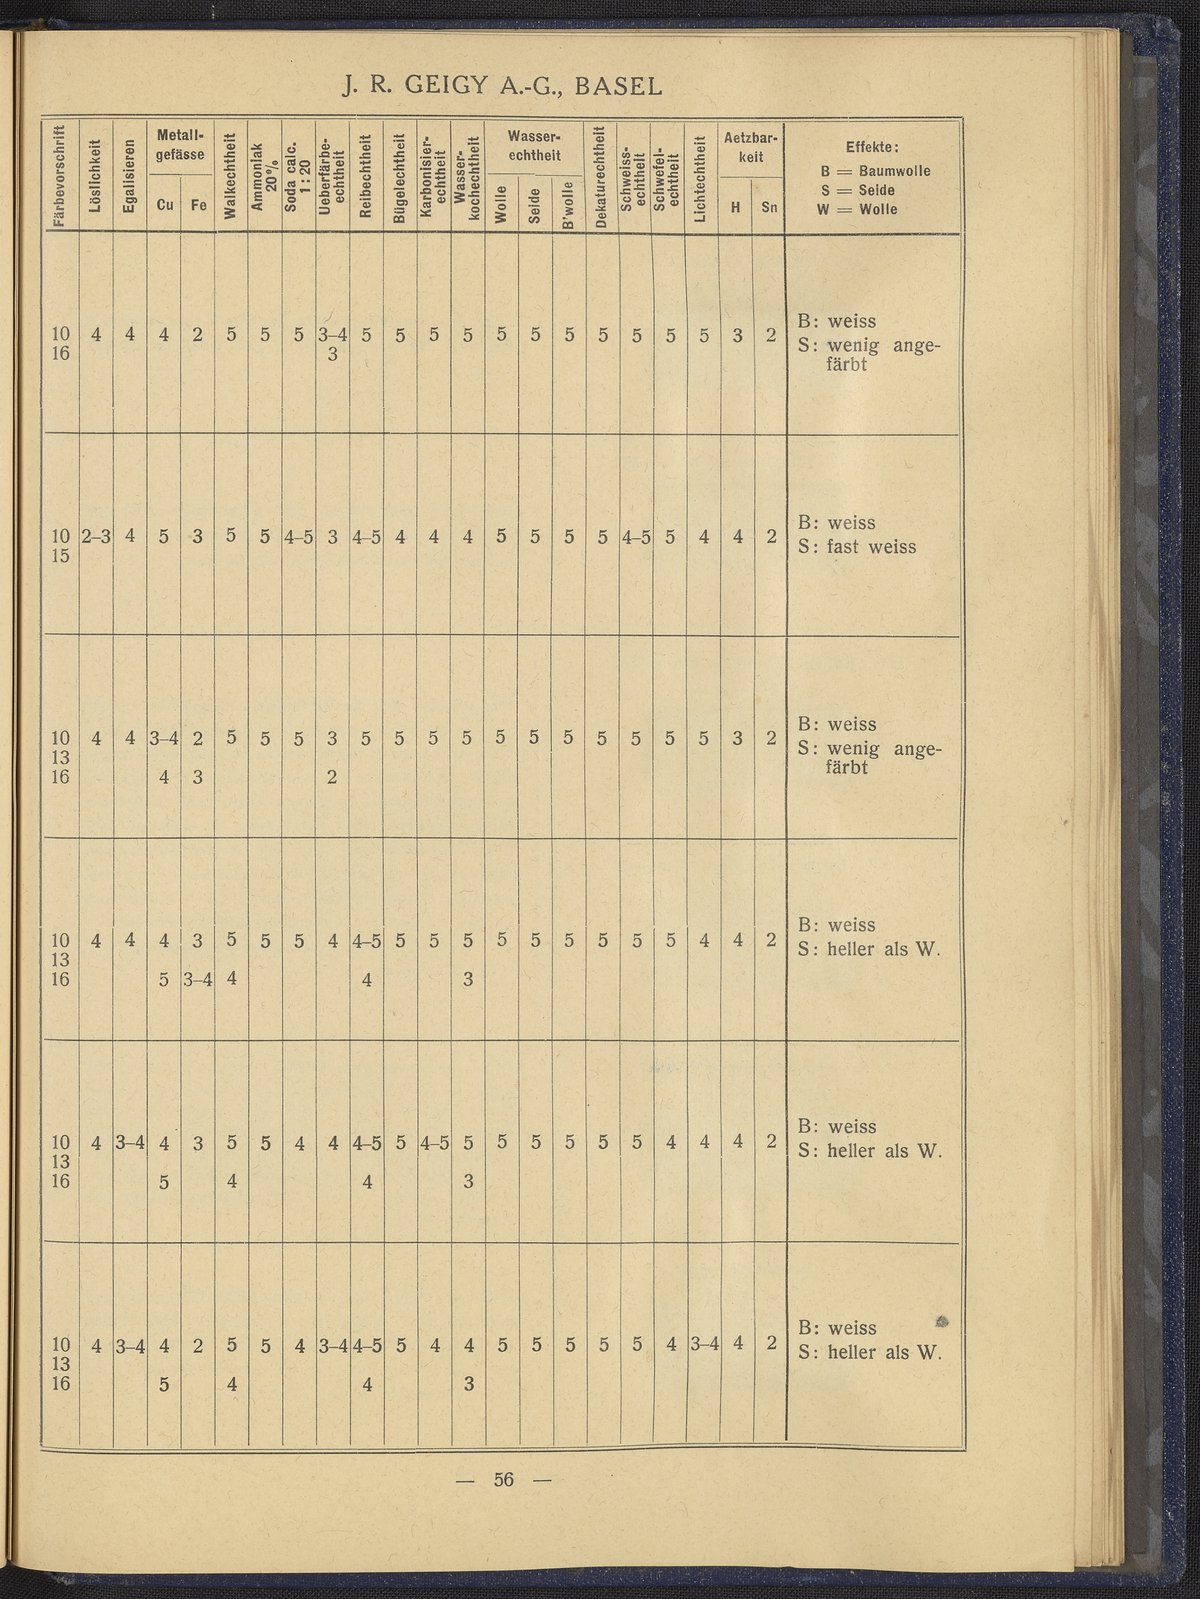 J. R. GEIGY A.-G., BASEL
Färbevorschrift
Löslichkeit
Egalisieren
Metall-
gefässe
Cu Fe
Walkechtheit
Ammoniak
20%
Soda calc.
1 : 20
Ueberfärbe-
echtheit
Reibechtheit
Bügelechtheit
Karbonisier-
echtheit
Wasser-
kochechtheit
Wasser-
echtheit
Wolle
Seide
B'wolle
Dekaturechtheit
Schweiss-
echtheit
Schwefel-
echtheit
Lichtechtheit
Aetzbar-
keit
H Sn
Effekte:
B = Baumwolle
S = Seide
W = Wolle
10 4 4 4 2 5 5 5 3–4 5 5 5 5 5 5 5 5 5 5 5 3 2
16 3
B: weiss
S: wenig ange-
färbt
10 2–3 4 5 3 5 5 4–5 3 4–5 4 4 4 5 5 5 5 4–5 5 4 4 2
15
B: weiss
S: fast weiss
10 4 4 3–4 2 5 5 5 3 5 5 5 5 5 5 5 5 5 5 5 3 2
13
16 4 3 2
B: weiss
S: wenig ange-
färbt
10 4 4 4 3 5 5 5 4 4–5 5 5 5 5 5 5 5 5 5 4 4 2
13
16 5 3–4 4 4 3
B: weiss
S: heller als W.
10 4 3–4 4 3 5 5 4 4 4–5 5 4–5 5 5 5 5 5 5 4 4 4 2
13
16 5 4 4 3
B: weiss
S: heller als W.
10 4 3–4 4 2 5 5 4 3–4 4–5 5 4 4 5 5 5 5 5 4 3–4 4 2
13
16 5 4 4 3
B: weiss
S: heller als W.
— 56 —